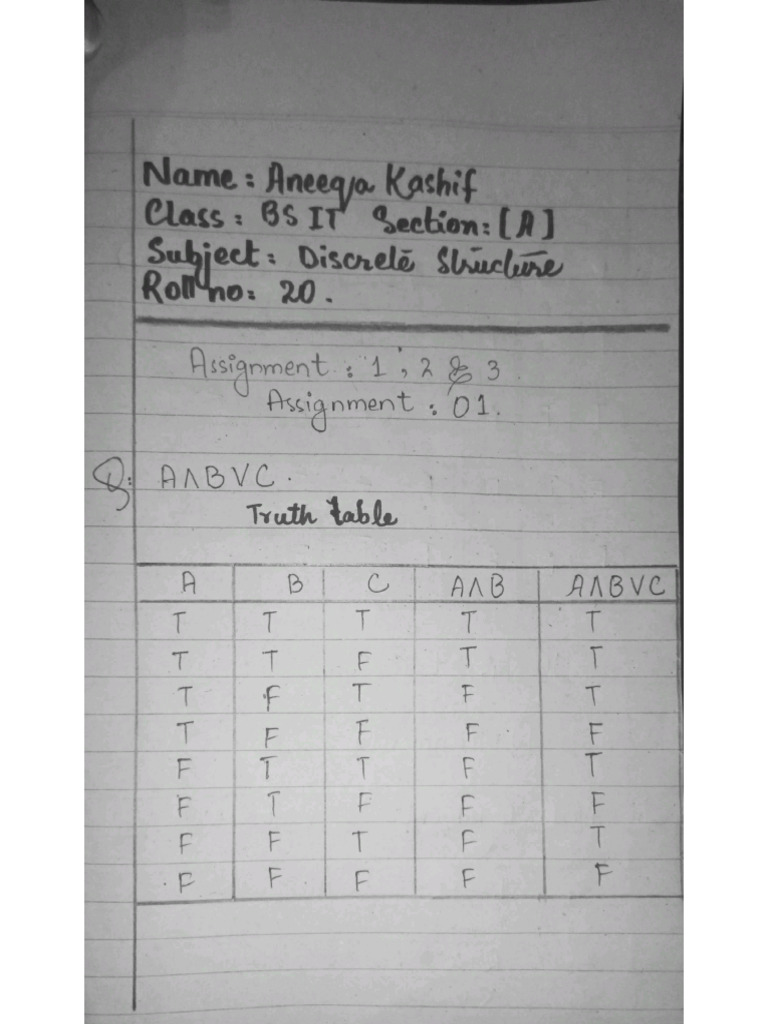 Name: Aneeqa Kashif
Class: BS IT Section: [A]
Subject: Discrete Structure
Roll no: 20.
Assignment: 1, 2 & 3.
Assignment: 01.
Q: A∧B∨C.
Truth table
A B C A∧B A∧B∨C
T T T T T
T T F T T
T F T F T
T F F F F
F T T F T
F T F F F
F F T F T
F F F F F